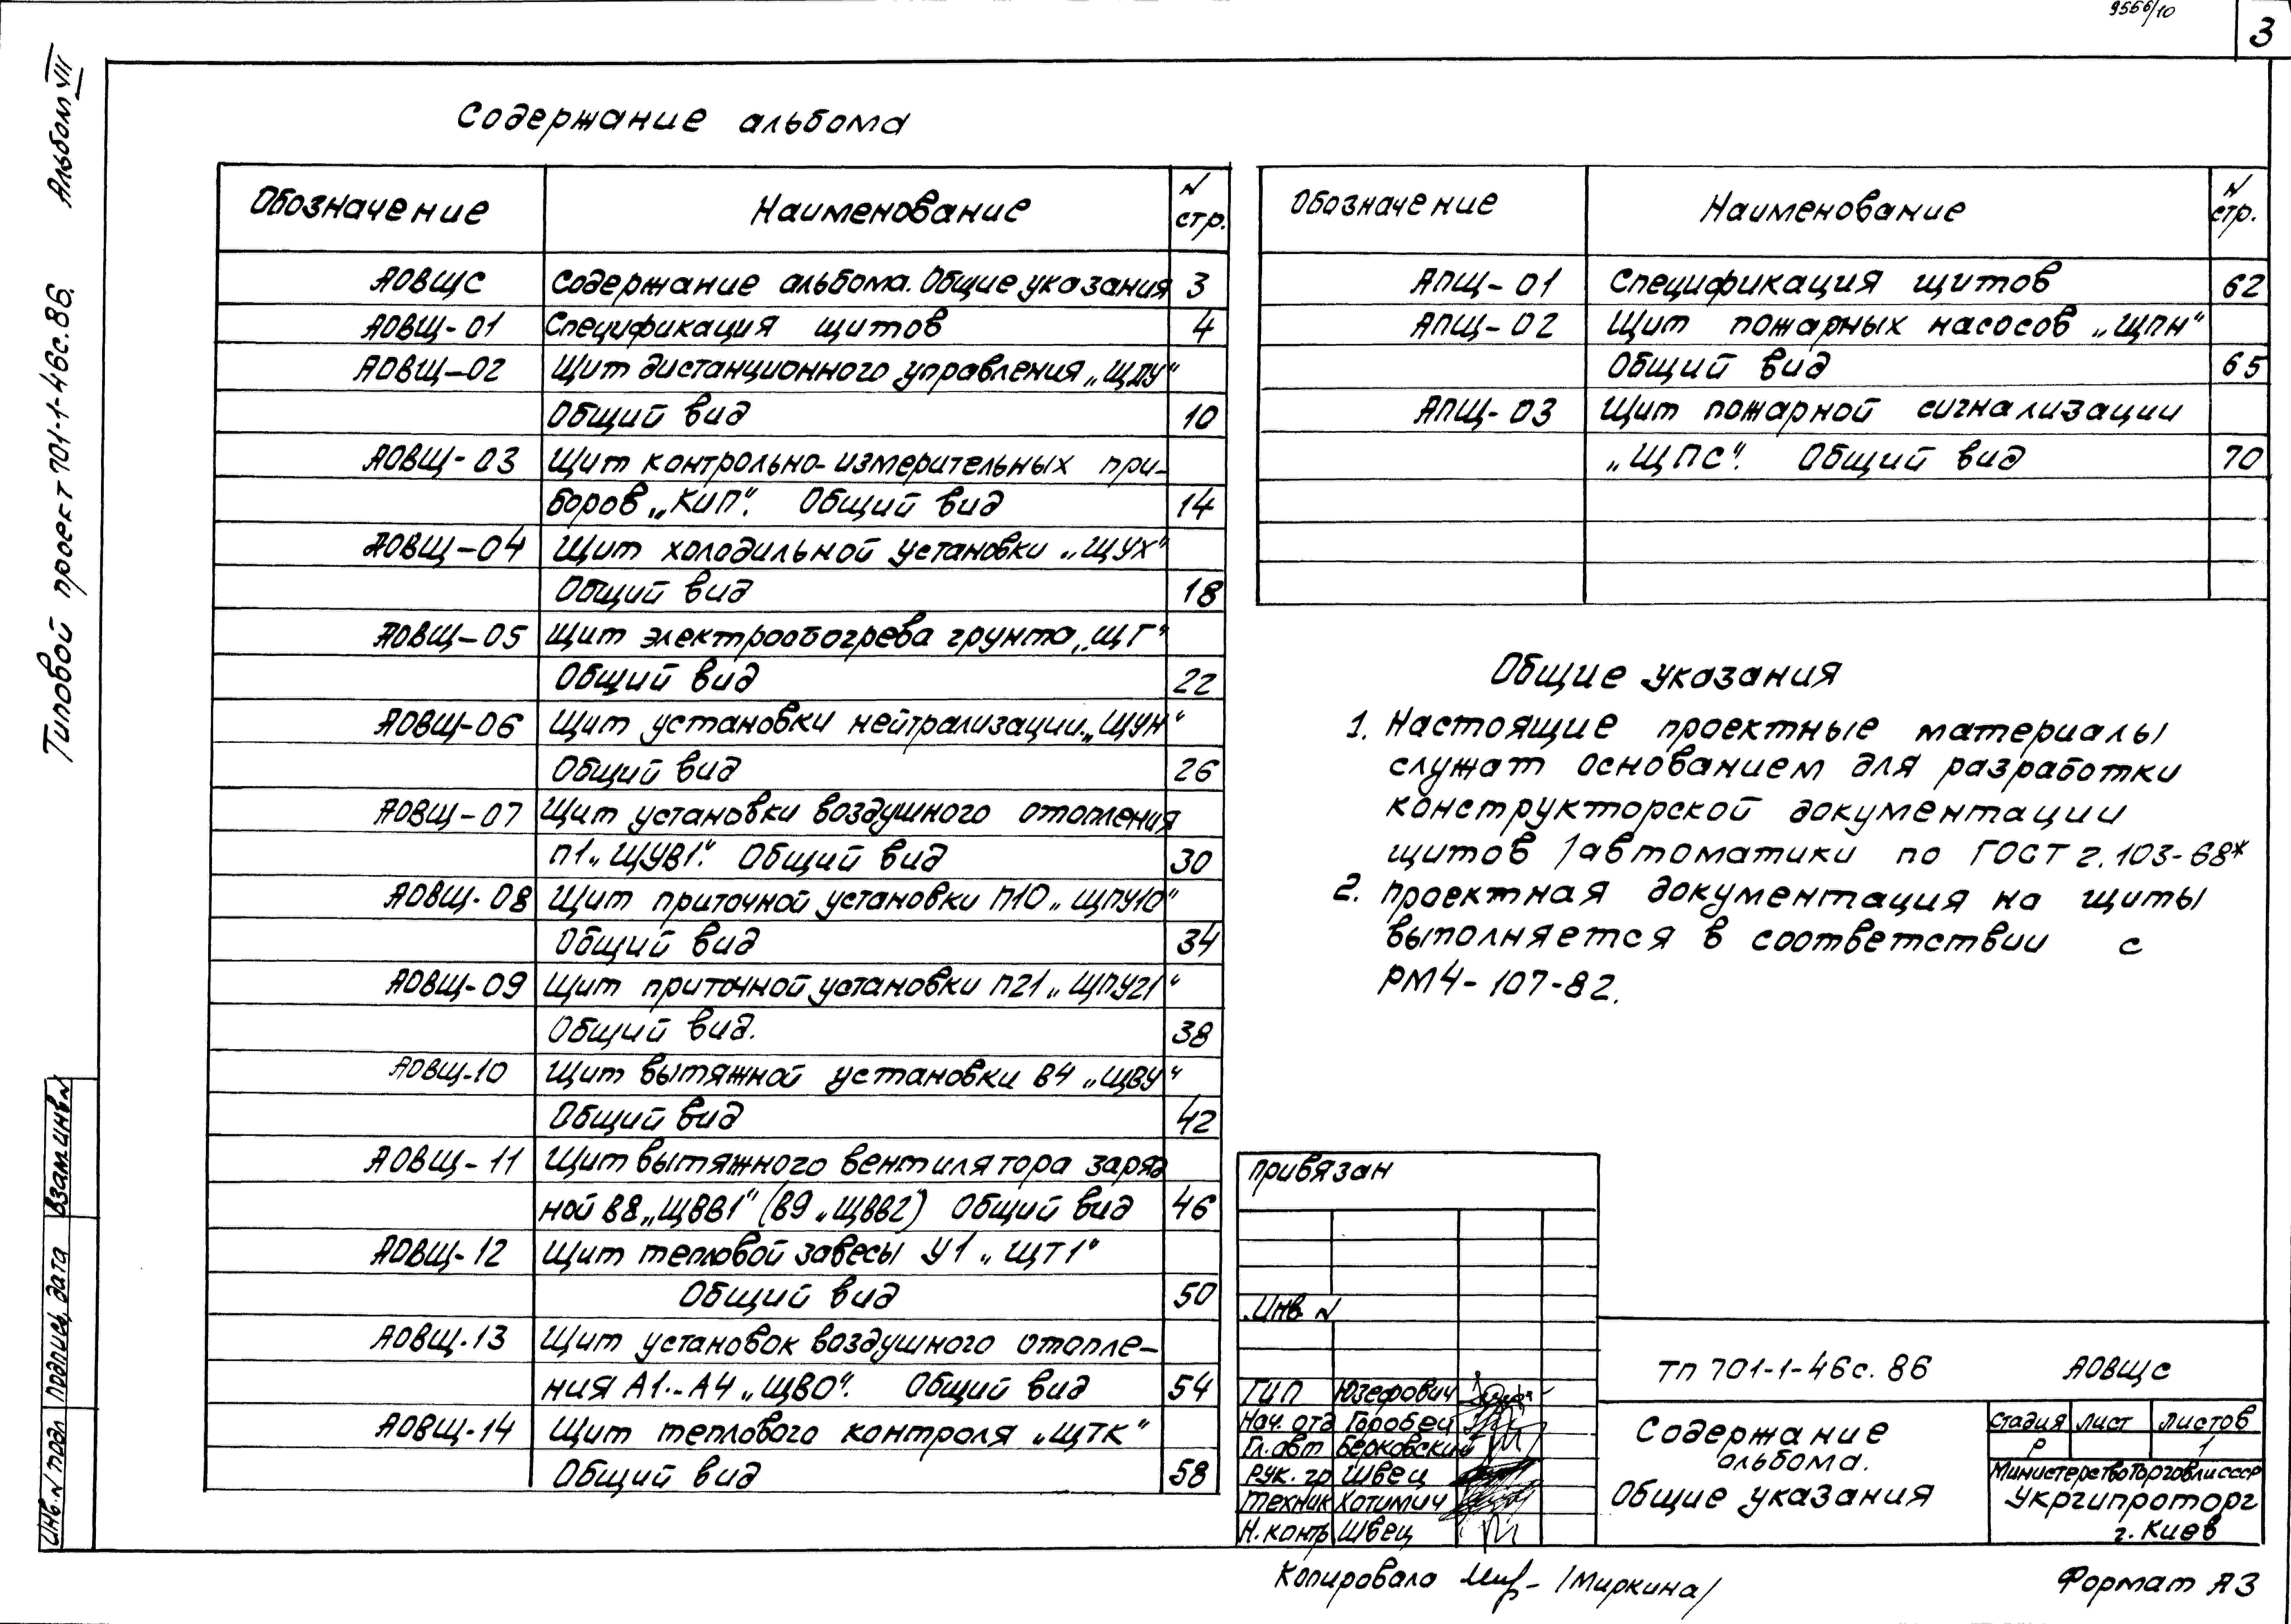 9556/10
3
Альбом VII
Типовой проект 701-1-46с.86.
Содержание альбома
Обозначение Наименование N стр.
АОВЩС Содержание альбома. Общие указания 3
АОВЩ-01 Спецификация щитов 4
АОВЩ-02 Щит дистанционного управления „ЩДУ"
Общий вид 10
АОВЩ-03 Щит контрольно-измерительных при-
боров „КИП". Общий вид 14
АОВЩ-04 Щит холодильной установки „ЩУХ"
Общий вид 18
АОВЩ-05 Щит электрообогрева грунта „ЩГ"
Общий вид 22
АОВЩ-06 Щит установки нейтрализации „ЩУН"
Общий вид 26
АОВЩ-07 Щит установки воздушного отопления
П1 „ЩУВ1". Общий вид 30
АОВЩ-08 Щит приточной установки П10 „ЩПУ10"
Общий вид 34
АОВЩ-09 Щит приточной установки П21 „ЩПУ21"
Общий вид. 38
АОВЩ-10 Щит вытяжной установки В4 „ЩВУ"
Общий вид 42
АОВЩ-11 Щит вытяжного вентилятора заряд
ной В8 „ЩВВ1" (В9 „ЩВВ2") Общий вид 46
АОВЩ-12 Щит тепловой завесы У1 „ЩТ1"
Общий вид 50
АОВЩ-13 Щит установок воздушного отопле-
ния А1..А4 „ЩВО". Общий вид 54
АОВЩ-14 Щит теплового контроля „ЩТК"
Общий вид 58
Обозначение Наименование N стр.
АПЩ-01 Спецификация щитов 62
АПЩ-02 Щит пожарных насосов „ЩПН"
Общий вид 65
АПЩ-03 Щит пожарной сигнализации
„ЩПС". Общий вид 70
Общие указания
1. Настоящие проектные материалы
служат основанием для разработки
конструкторской документации
щитов /автоматики по ГОСТ 2.103-68*
2. Проектная документация на щиты
выполняется в соответствии с
РМ4-107-82.
Привязан
Инв. N
ГИП Юзефович
Нач. отд Горобец
Гл. авт Берковский
Рук. гр Швец
Техник Хотимич
Н. контр Швец
ТП 701-1-46с.86 АОВЩС
Содержание
альбома.
Общие указания
Стадия Лист Листов
Р 1
Министерство Торговли СССР
Укргипроторг
г. Киев
Инв. N подл Подпись, дата Взам инв N
Копировала /Миркина/
Формат А3